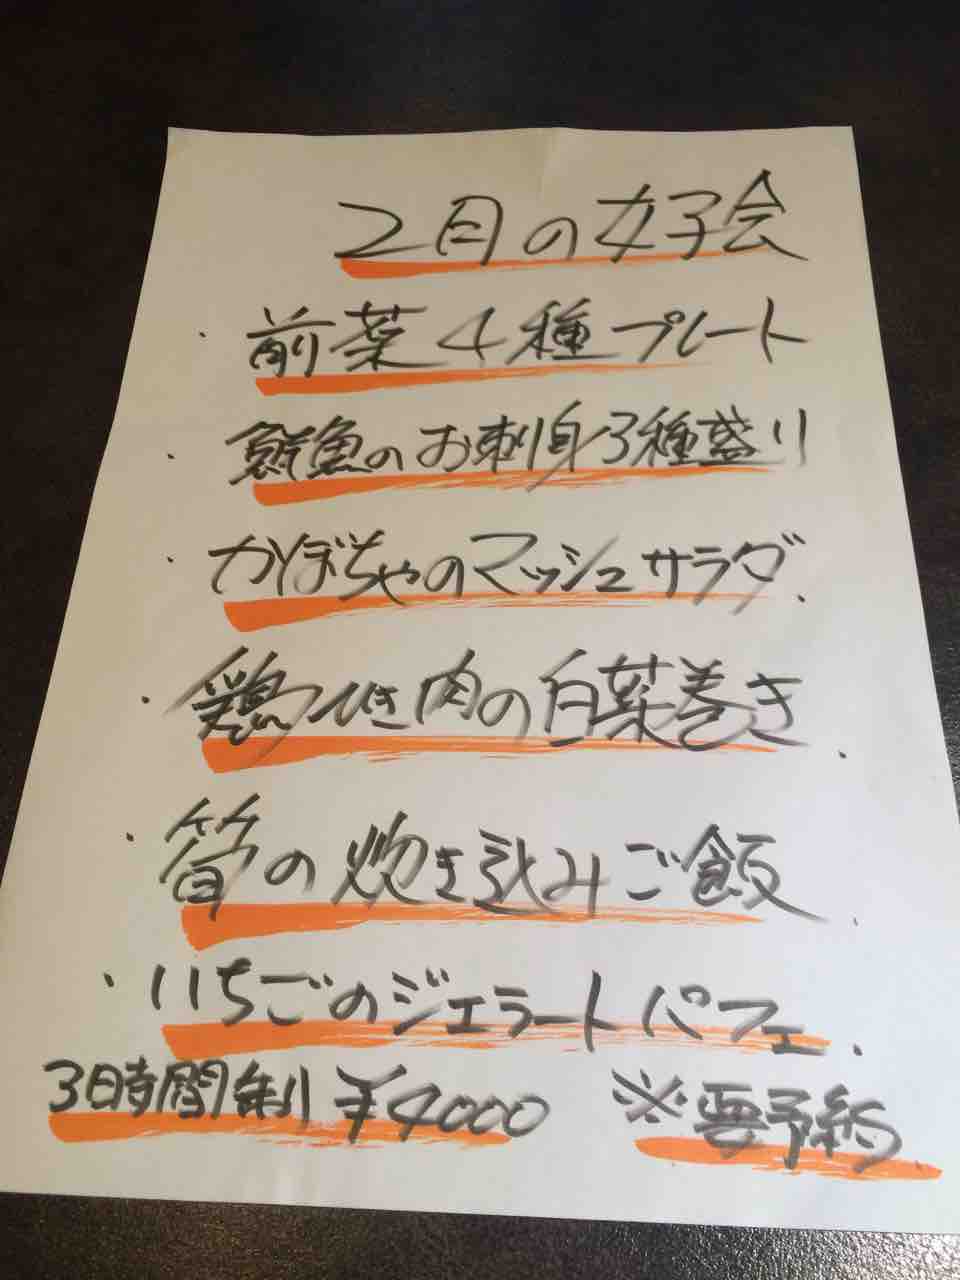 2月の女子会
・前菜4種プレート
・鮮魚のお刺身3種盛り
・かぼちゃのマッシュサラダ.
・鶏ひき肉の白菜巻き.
・筍の炊き込みご飯.
・いちごのジェラートパフェ.
3時間制 ¥4000 ※要予約